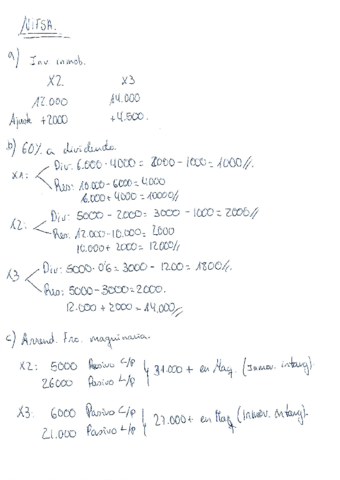 NIFSA.
a) Inv inmob.
X2 X3
12.000 14.000
Ajuste +2000 +4.500.
b) 60% a dividendo.
X1: Div: 6.000 - 4000 = 2000 - 1000 = 1000//.
Res: 10.000 - 6000 = 4000
6.000 + 4000 = 10000//
X2: Div: 5000 - 2000 = 3000 - 1000 = 2000//
Res: 12.000 - 10.000 = 2000
10.000 + 2000 = 12000//
X3 Div: 5000 · 0'6 = 3000 - 1200 = 1800//.
Res: 5000 - 3000 = 2000.
12.000 + 2000 = 14.000//
c) Arrend. Fro. maquinaria.
X2: 5000 Pasivo C/p
26000 Pasivo L/p } 31.000 + en Maq. (Inmov. intang).
X3: 6000 Pasivo C/p
21.000 Pasivo L/p } 27.000 + en Maq (Inmov. intang).